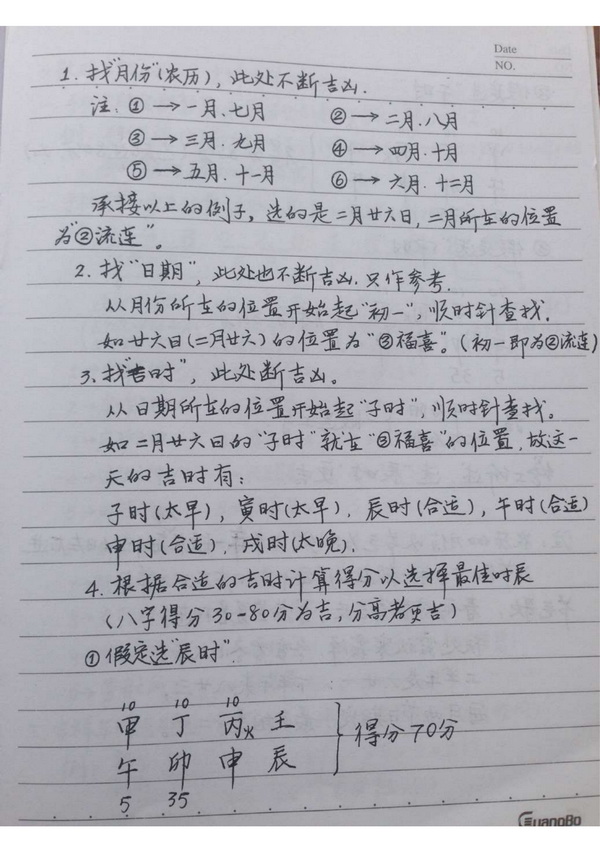 Date
NO.
1. 找"月份"(农历), 此处不断吉凶.
注: ① → 一月.七月 ② → 二月.八月
③ → 三月.九月 ④ → 四月.十月
⑤ → 五月.十一月 ⑥ → 六月.十二月
承接以上的例子, 选的是二月廿六日, 二月所在的位置
为"②流连"。
2. 找"日期", 此处也不断吉凶.只作参考.
从月份所在的位置开始起"初一", 顺时针查找.
如廿六日(二月廿六)的位置为"③福喜"。(初一即为②流连)
3. 找"吉时", 此处断吉凶。
从日期所在的位置开始起"子时", 顺时针查找.
如二月廿六日的"子时"就在"③福喜"的位置, 故这一
天的吉时有:
子时(太早), 寅时(太早), 辰时(合适), 午时(合适)
申时(合适), 戌时(太晚).
4. 根据合适的吉时计算得分以选择最佳时辰
(八字得分30-80分为吉,分高者更吉)
①假定选"辰时".
10 10 10
甲 丁 丙火 壬
得分70分
午 卯 申 辰
5 35
GuangBo